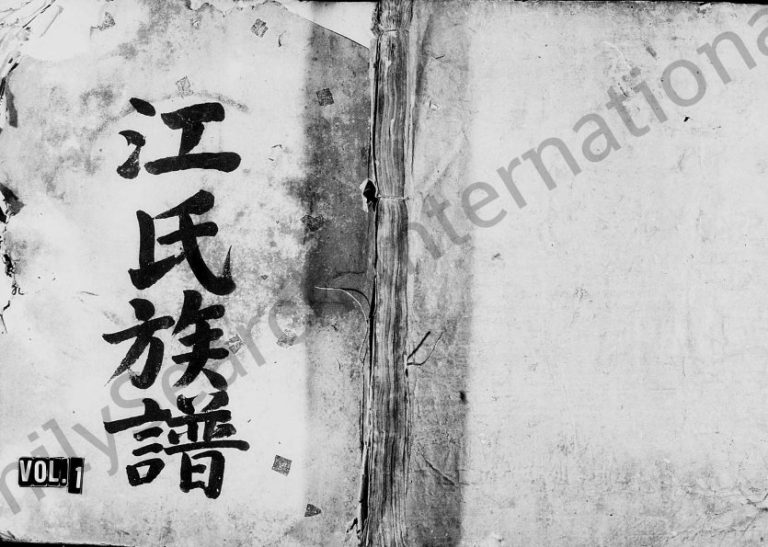 江氏族譜
VOL. 1
FamilySearch International